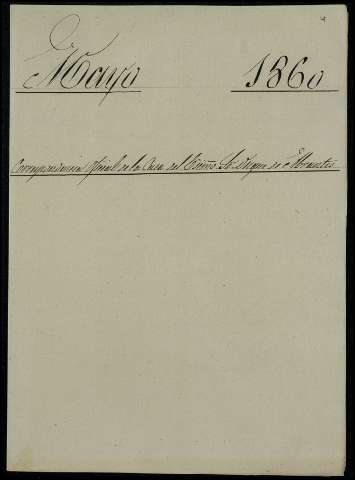 Mayo 1860
Correspondencia oficial de la Casa del Excmo. Sr. Duque de Abrantes